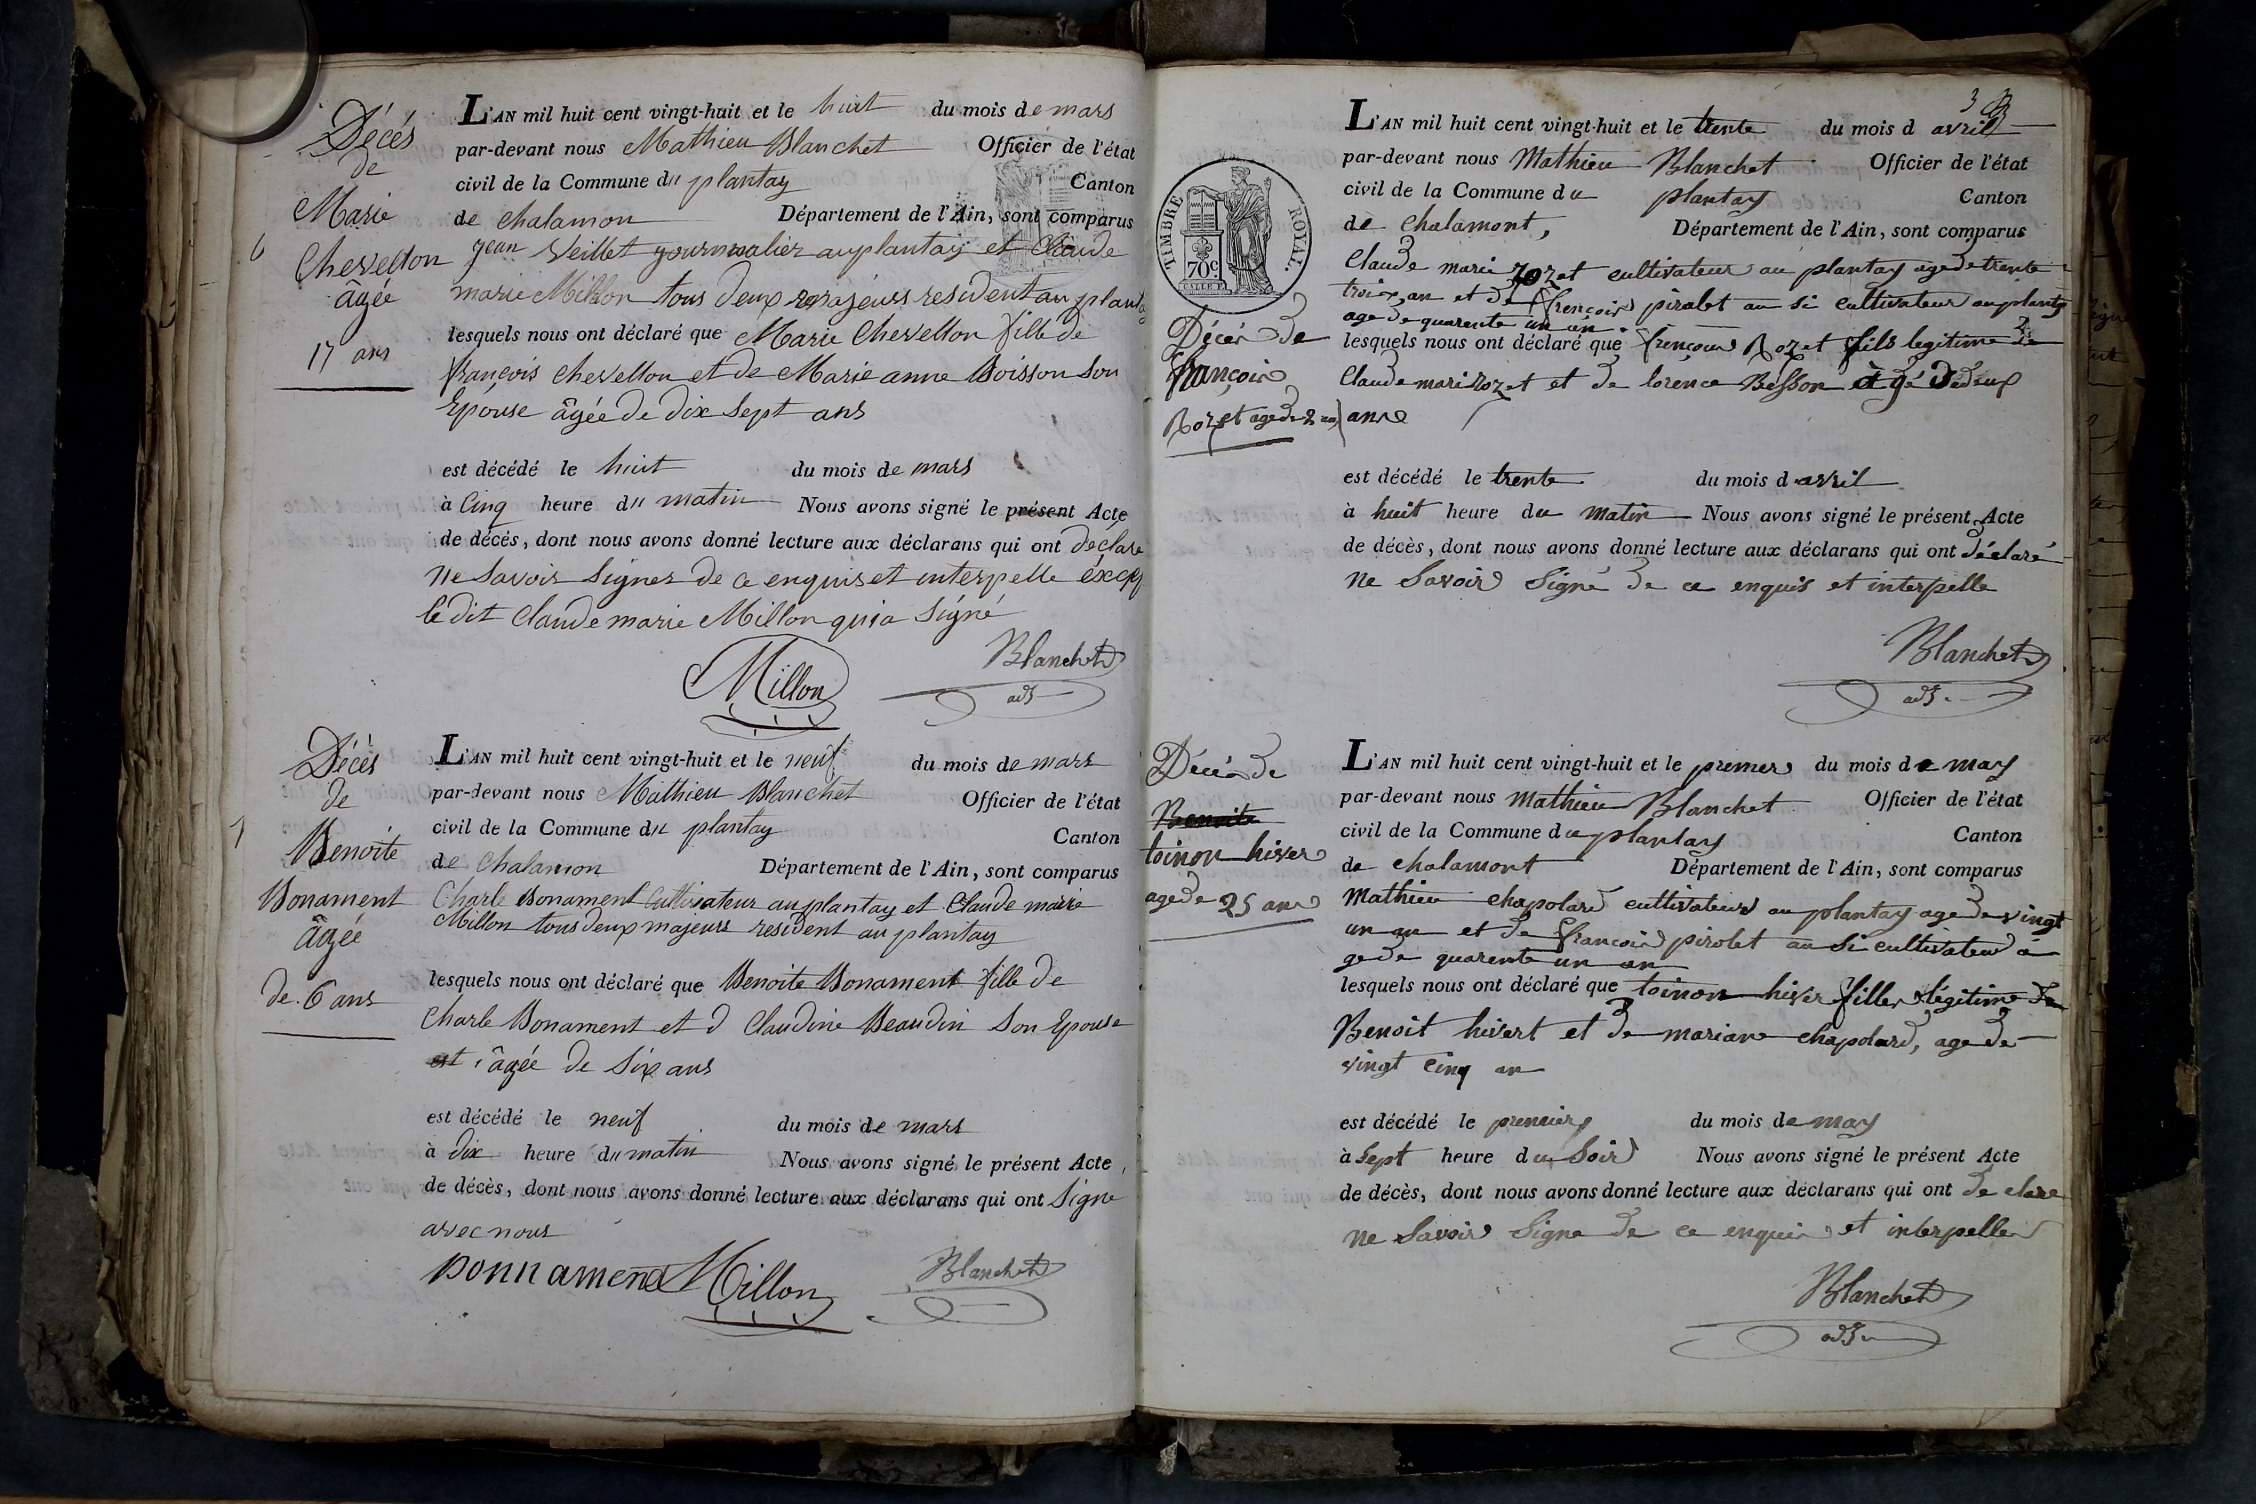 Décés
de
Marie
6
Chevellon
âgée
17 ans
L'AN mil huit cent vingt-huit et le huit du mois de mars
par-devant nous Mathieu Blanchet Officier de l'état
civil de la Commune du plantay Canton
de chalamon Département de l'Ain, sont comparus
jean Veillet journnalier au plantay et Claude
marie Millon tous deux majeurs resident au plantay
lesquels nous ont déclaré que Marie Chevellon fille de
françois chevellon et de Marie anne Boisson Son
Epouse âgée de dix Sept ans
est décédé le huit du mois de mars
à Cinq heure du matin Nous avons signé le présent Acte
de décès, dont nous avons donné lecture aux déclarans qui ont declare
ne Savoir Signer de ce enquis et interpelle éxcep
le dit Claude marie Millon qui a Signé
Millon Blanchet
adj
Décès
de
7
Benoite
Bonament
âgée
de 6 ans
L'AN mil huit cent vingt-huit et le neuf du mois de mars
par-devant nous Mathieu Blanchet Officier de l'état
civil de la Commune du plantay Canton
de chalamon Département de l'Ain, sont comparus
Charle Bonament Cultivateur au plantay et Claude marie
Millon tous deux majeurs resident au plantay
lesquels nous ont déclaré que Benoite Bonament fille de
Charle Bonament et d Claudine Beaudin Son Epouse
est âgée de Six ans
est décédé le neuf du mois de mars
à dix heure du matin Nous avons signé le présent Acte
de décès, dont nous avons donné lecture aux déclarans qui ont Signe
avec nous
Bonnamend Millon Blanchet
3
TIMBRE ROYAL.
70c
Décés de
françois
Rozet age de 2 ans
L'AN mil huit cent vingt-huit et le trente du mois d avril
par-devant nous Mathieu Blanchet Officier de l'état
civil de la Commune du plantay Canton
de chalamont, Département de l'Ain, sont comparus
Claude marie rozet cultivateur au plantay age de trente
trois an et de françois pirolet au si cultivateur au plantay
age de quarente un an
lesquels nous ont déclaré que françois Rozet fils legitime de
Claude mari rozet et de lorence Besson agé de deux
ans
est décédé le trente du mois d avril
à huit heure du matin Nous avons signé le présent Acte
de décès, dont nous avons donné lecture aux déclarans qui ont déclaré
ne Savoir Signé de ce enquis et interpelle
Blanchet
adj
Décés de
Benoite
toinon hiver
age de 25 ans
L'AN mil huit cent vingt-huit et le premer du mois de may
par-devant nous Mathieu Blanchet Officier de l'état
civil de la Commune du plantay Canton
de chalamont Département de l'Ain, sont comparus
Mathieu chapolard cultivateur au plantay age de vingt
un an et de françois pirolet au si cultivateur a
ge de quarente un an
lesquels nous ont déclaré que toinon hiver fille légitime de
Benoit hivert et de mariane chapolard, age de
vingt cinq an
est décédé le premier du mois de may
à Sept heure du Soir Nous avons signé le présent Acte
de décès, dont nous avons donné lecture aux déclarans qui ont declare
ne Savoir Signe de ce enquis et interpeller
Blanchet
adj